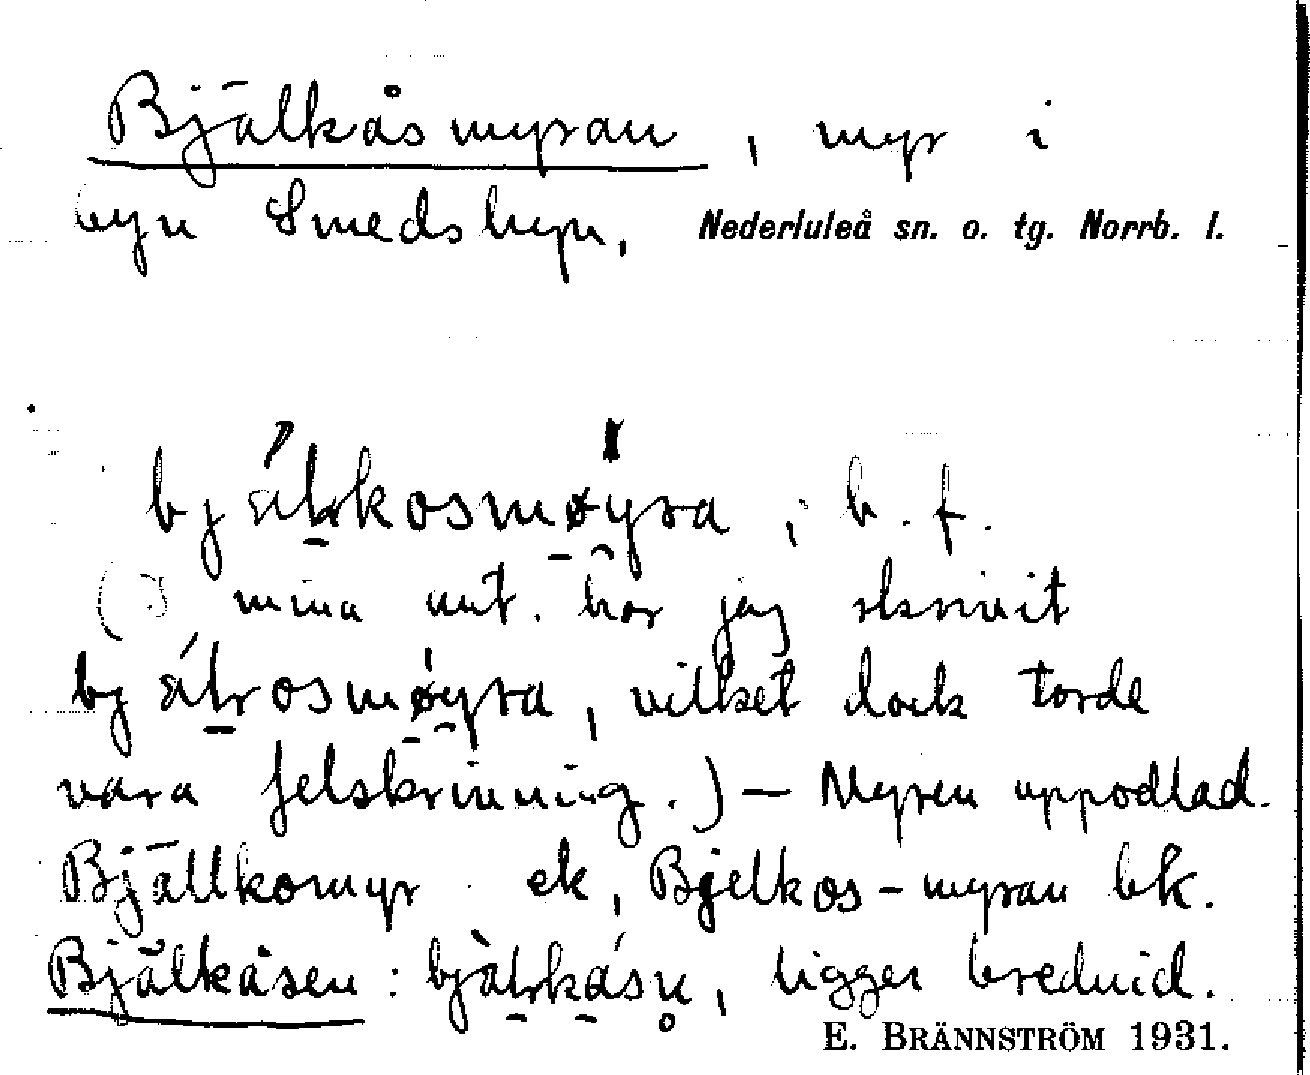 Bjälkåsmyran, myr i
byn Smedsbyn, Nederluleå sn. o. tg. Norrb. l.
b. f.
(I mina ant. har jag skrivit
vilket dock torde
vara felskrivning.) — Myren uppodlad.
Bjällkomyr ek, Bjelkos-myran bk.
Bjälkåsen: ligger bredvid.
E. BRÄNNSTRÖM 1931.